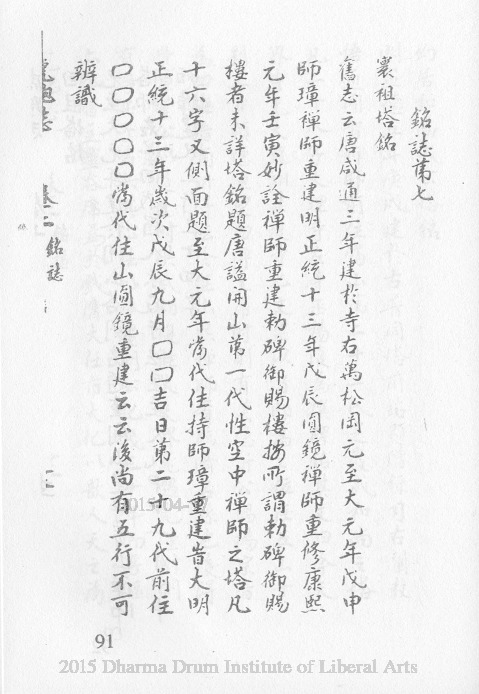 銘誌第七
寰祖塔銘
舊志云唐咸通三年建於寺右萬松岡元至大元年戊申
師璋禪師重建明正統十三年戊辰圓鏡禪師重修康熙
元年壬寅妙詮禪師重建勅碑御賜樓按所謂勅碑御賜
樓者未詳塔銘題唐謚開山第一代性空中禪師之塔凡
十六字又側面題至大元年當代住持師璋重建旹大明
正統十三年歲次戊辰九月〇〇吉日第二十九代前住
〇〇〇〇〇當代住山圓鏡重建云云後尚有五行不可
辨識
卷二 銘誌
91
2015-04-
2015 Dharma Drum Institute of Liberal Arts